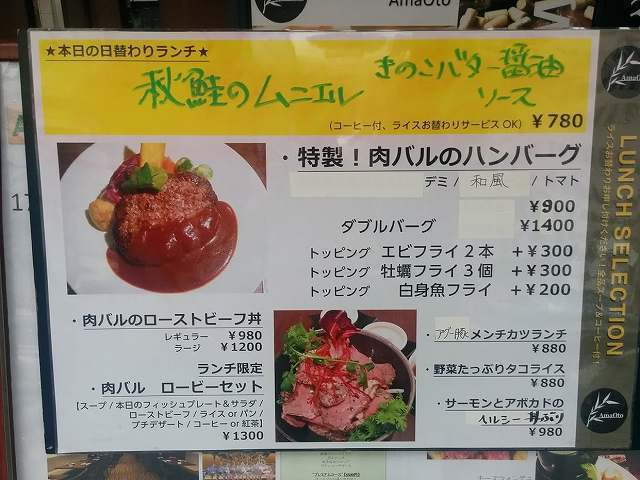 AmaOto
★本日の日替わりランチ★
秋鮭のムニエル
きのこバター醤油
ソース
(コーヒー付、ライスお替わりサービスOK) ¥780
・特製!肉バルのハンバーグ
デミ / 和風 / トマト
¥900
ダブルバーグ ¥1400
トッピング エビフライ2本 +¥300
トッピング 牡蠣フライ3個 +¥300
トッピング 白身魚フライ +¥200
・肉バルのローストビーフ丼
レギュラー ¥980
ラージ ¥1200
ランチ限定
・肉バル ロービーセット
【スープ/本日のフィッシュプレート&サラダ/
ローストビーフ/ライスorパン/
プチデザート/コーヒーor紅茶】
¥1300
・アグー豚メンチカツランチ
¥880
・野菜たっぷりタコライス
¥880
・サーモンとアボカドの
ヘルシー丼ぶり
¥980
AmaOto
LUNCH SELECTION
AmaOto